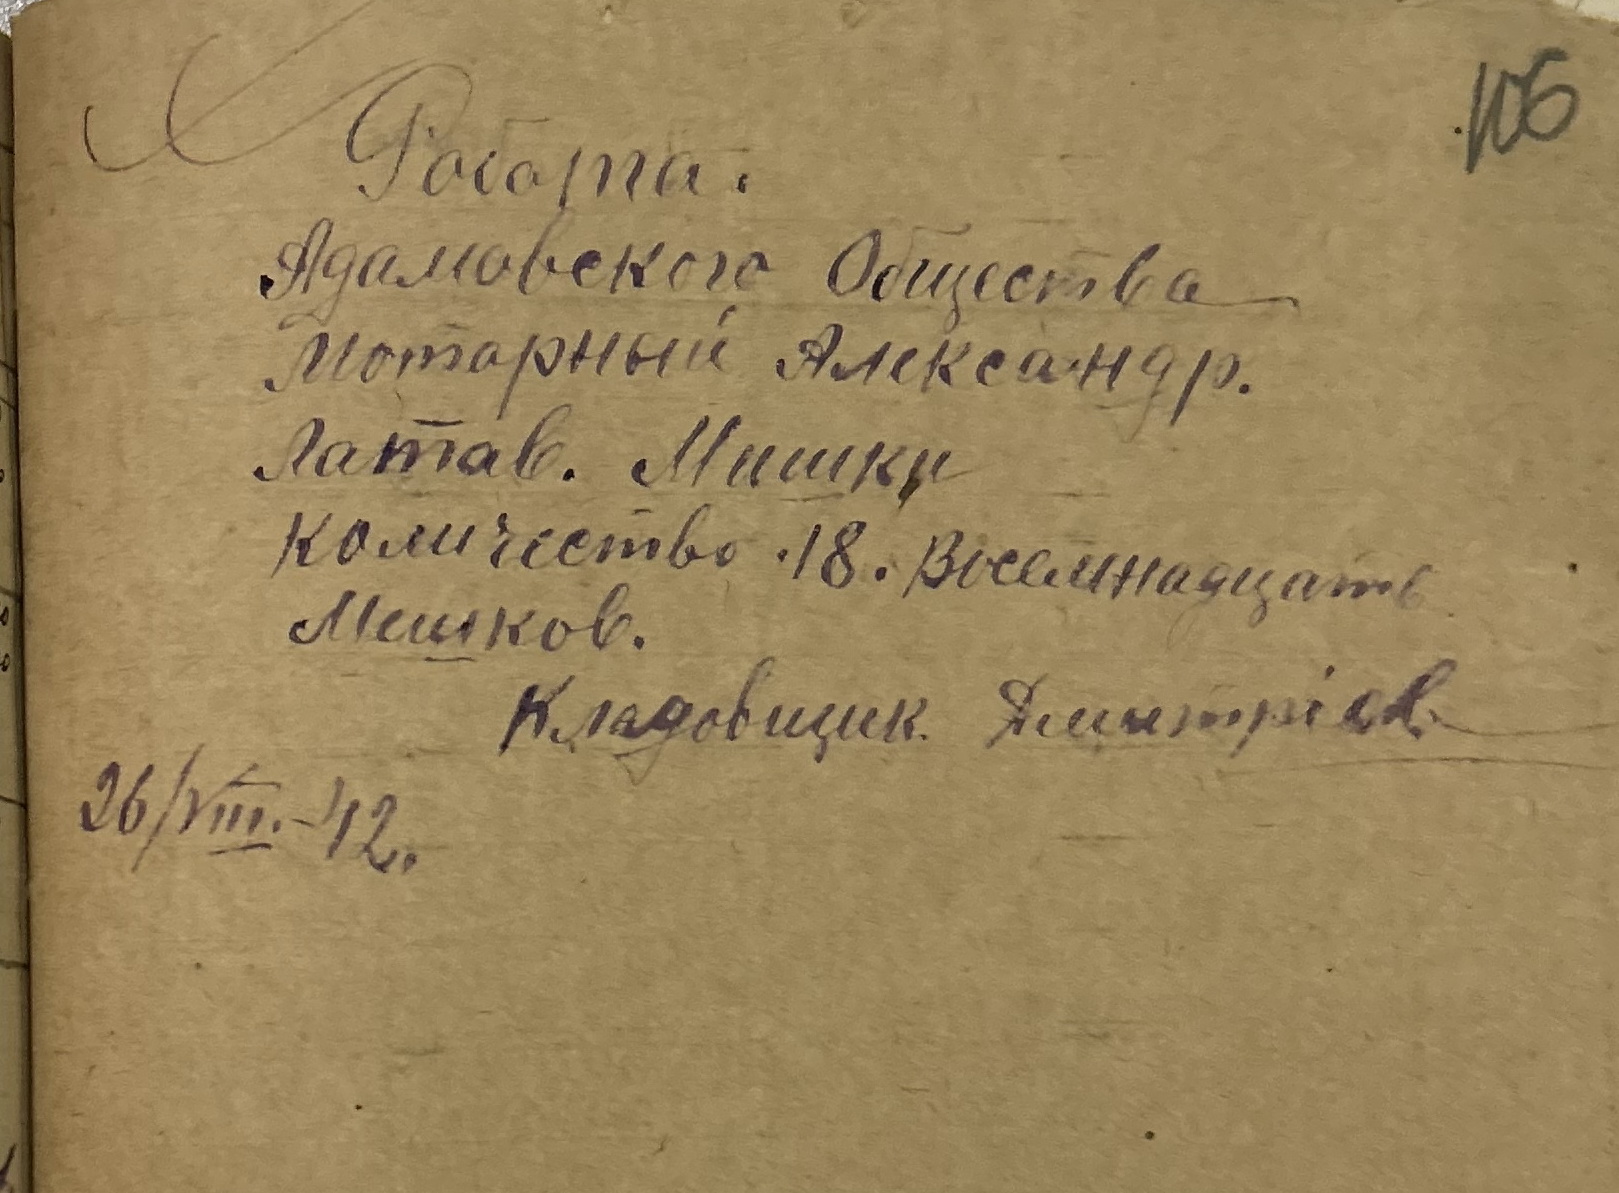 106
Робота.
Адамовского Общества
Моторный Александр.
Латав. Мишки
Количество .18. Восемнадцать
Мешков.
Кладовщик. Дмитріев.
26/VIII.-42.